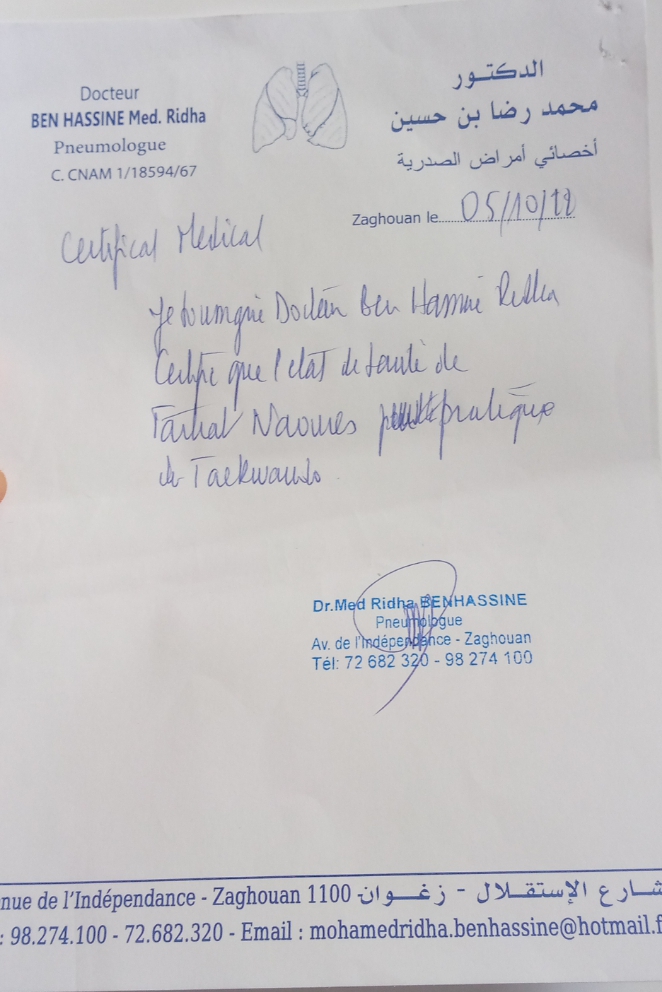 Docteur
BEN HASSINE Med. Ridha
Pneumologue
C. CNAM 1/18594/67
الدكتور
محمد رضا بن حسين
أخصائي أمراض الصدرية
Zaghouan le 05/10/22
Certificat Medical
Je soussigné Docteur Ben Hassine Ridha
Certifie que l'état de santé de
Farhat Naoures pratique
de Taekwando
Dr.Med Ridha BENHASSINE
Pneumologue
Av. de l'Indépendance - Zaghouan
Tél: 72 682 320 - 98 274 100
nue de l'Indépendance - Zaghouan 1100 شارع الإستقلال - زغوان
: 98.274.100 - 72.682.320 - Email : mohamedridha.benhassine@hotmail.f